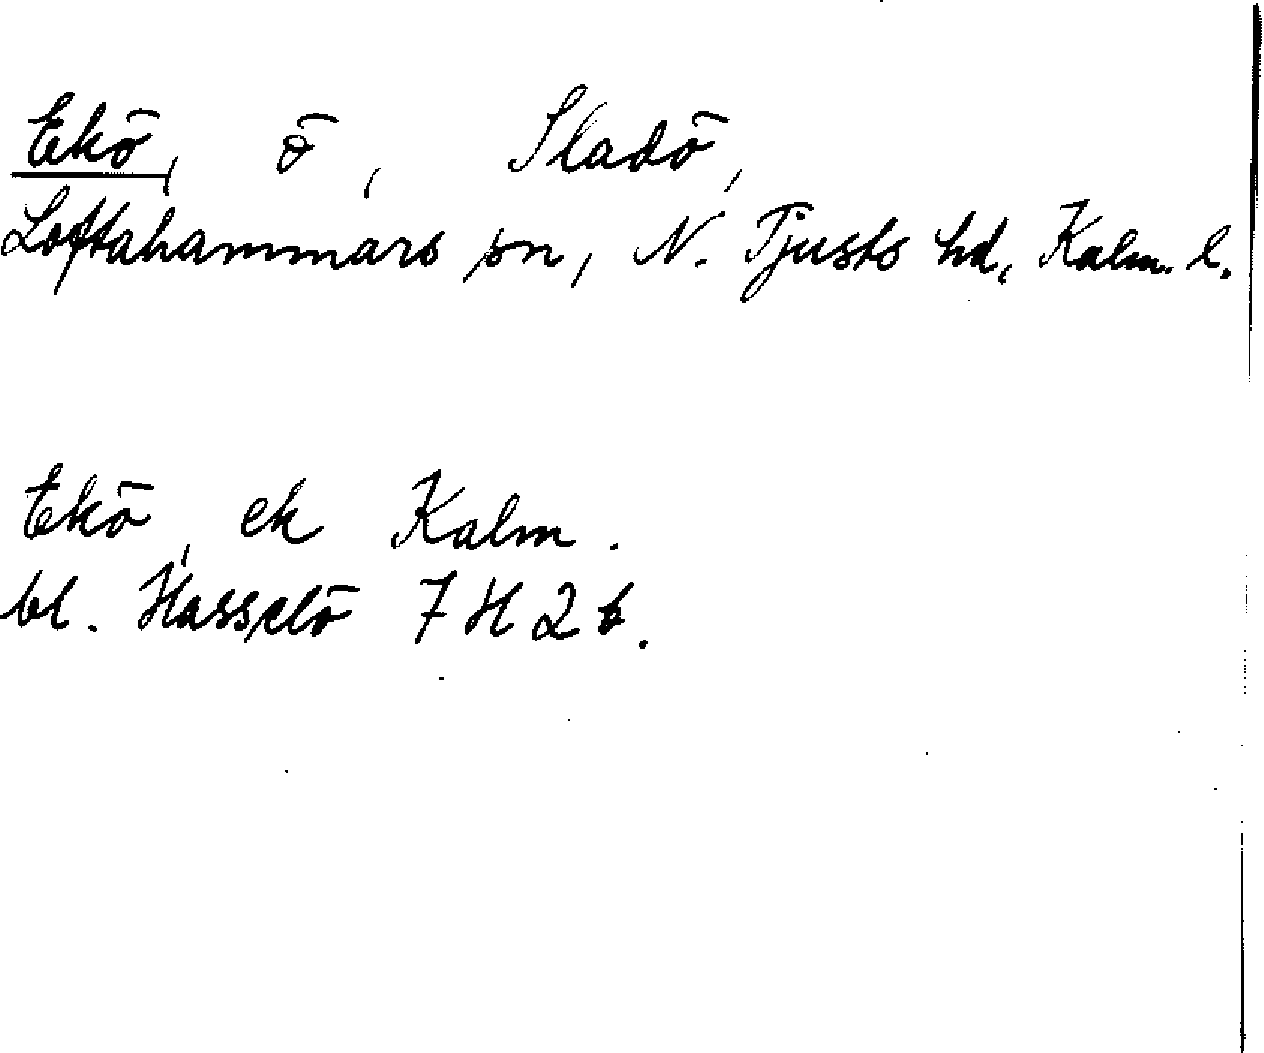 Ekö, ö, Sladö,
Loftahammars sn, N. Tjusts hd, Kalm. l.
Ekö, ek Kalm.
bl. Hasselö 7 H 2 b.